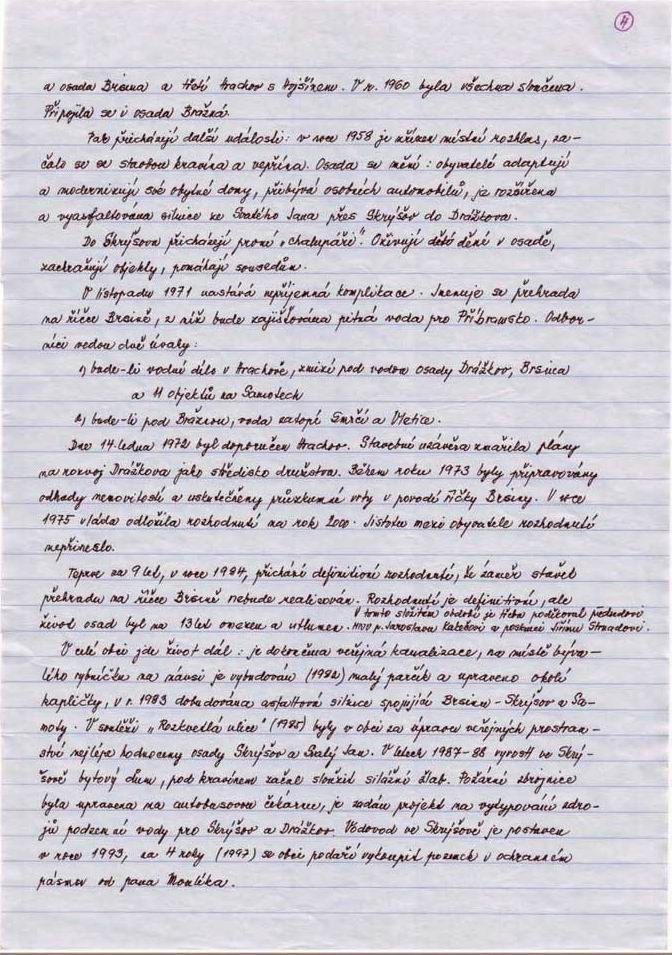 4
a osada Brzina a třetí Hrachov s Hojšínem. V r. 1960 byla všechna sloučena.
Připojila se i osada Brážná.
Pak přicházejí další události: v roce 1958 je zřízen místní rozhlas, za-
čalo se se stavbou kravína a vepřína. Osada se mění: obyvatelé adaptují
a modernizují své obytné domy, přibývá osobních automobilů, je rozšířena
a vyasfaltována silnice ke Svatého Jana přes Skrýšov do Drážkova.
Do Skrýšova přicházejí první „chalupáři". Oživují dětó dění v osadě,
zachraňují objekty, pomáhají sousedům.
V listopadu 1971 nastává nepříjemná komplikace. Jmenuje se přehrada
na říčce Brzině, z níž bude zajišťována pitná voda pro Příbramsko. Odbor-
níci vedou dvě úvahy:
1) bude-li vodní dílo v Hrachově, zmizí pod vodou osady Drážkov, Brzina
a 11 objektů na Samotech
2) bude-li pod Brážnou, voda zatopí Smrčí a Vletice.
Dne 14. ledna 1972 byl doporučen Hrachov. Stavební uzávěra zmařila plány
na rozvoj Drážkova jako středisko družstva. Během roku 1973 byly připravovány
odhady nemovitostí a uskutečněny průzkumné vrty v povodí říčky Brziny. V roce
1975 vláda odložila rozhodnutí na rok 2000. Jistotu mezi obyvatele rozhodnutí
nepřineslo.
Teprve za 9 let, v roce 1984, přichází definitivní rozhodnutí, že záměr stavět
přehradu na říčce Brzině nebude realizován. Rozhodnutí je definitivní, ale
život osad byl na 13 let omezen a utlumen. V tomto složitém období je třeba poděkovat předsedovi
MNV p. Jaroslavu Kalečovi a posléze Jiřímu Strnadovi.
V celé obci jde život dál: je dokončena veřejná kanalizace, na místě býva-
lého rybníčku na návsi je vybudován (1982) malý parčík a upraveno okolí
kapličky, v r. 1983 dobudována asfaltová silnice spojující Brzinu - Skrýšov a Sa-
moty. V soutěži „Rozkvetlá ulice" (1985) byly v obci za úpravu veřejných prostran-
ství nejlépe hodnoceny osady Skrýšov a Svatý Jan. V letech 1987-88 vyrostl ve Skrý-
šově bytový dům, pod kravínem začne sloužit silážní žlab. Požární zbrojnice
byla upravena na autobusovou čekárnu, je zadán projekt na vytypování zdro-
jů podzemní vody pro Skrýšov a Drážkov. Vodovod ve Skrýšově je postaven
v roce 1993, za 4 roky (1997) se obci podaří vykoupit pozemek v ochranném
pásmu od pana Moulíka.